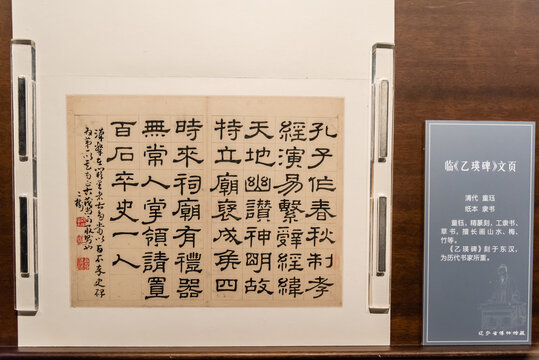 孔子作春秋制孝
經演易繫辭經緯
天地幽讃神眀故
特立廟襃成矦四
時來祠廟有禮器
無常人掌領請置
百石卒史一人
临《乙瑛碑》文页
清代 童钰
纸本 隶书
童钰，精篆刻，工隶书、
草书，擅长画山水、梅、
竹等。
《乙瑛碑》刻于东汉，
为历代书家所重。
辽宁省博物馆藏